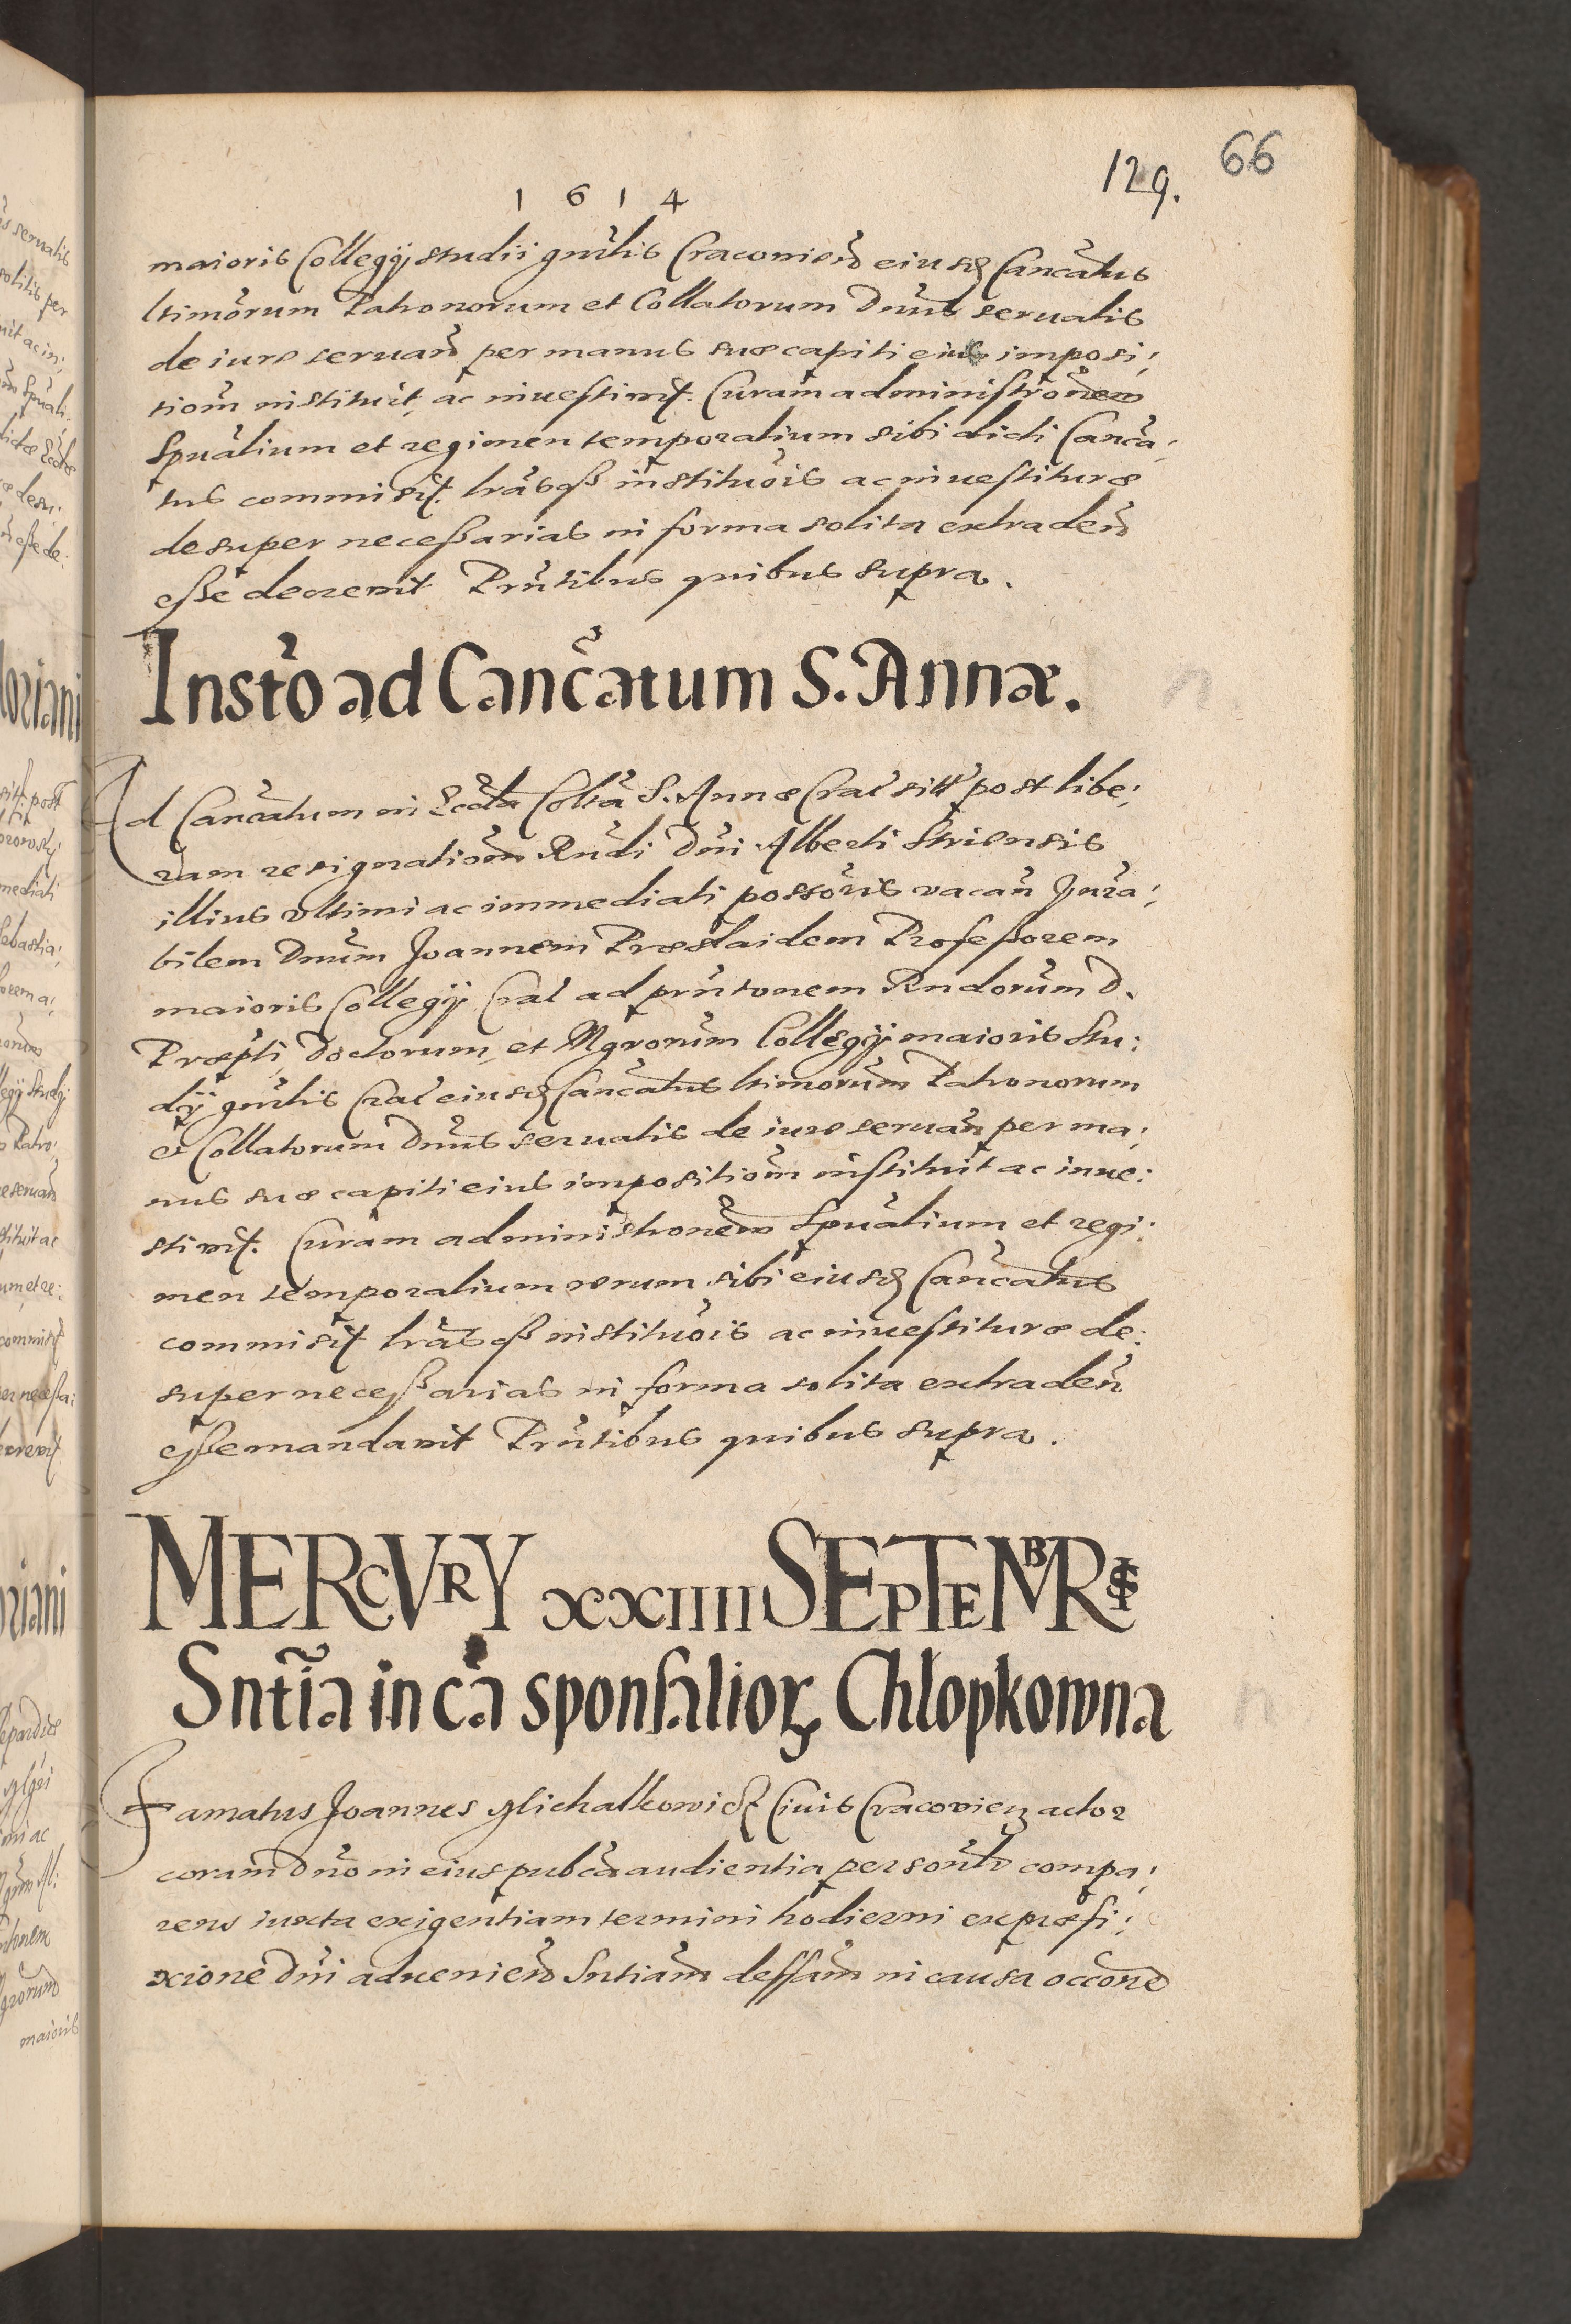 1 6 1 4
129.
66
maioris Collegij studii gnr̃lis Cracovien̄ eiusd̄ Canc̃atus
ltimõrum Patronorum et Collatorum Dn̄is servatis
de iure servan̄ per manus suæ capiti eius imposi;
tiom̃ instituit, ac investivit. Curam administrõnem
Spũalium et regimen temporalium sibi dicti Canc̃a;
tus commisit. lrãsqß institu͠ois ac investituræ
desuper neceßarias in forma solita extraden̄
eßе decrevit Prñtibus quibus supra.
Inst̃o ad Canc̃atum S. Annæ.
Ad Canc̃atum in Eccl̃a Coll̃a S. Annæ Crac̄ sitt̃ post libe;
ram resignatiom̃ Rn̄di Dn̄i Alberti Striensis
illius vltimi ac immediati possõris vacan̄ Hnra;
bilem Dn̄um Joannem Præslaidem Profeßorem
maioris Collegij Crac̄ ad prñtonem Rndorum̃ D.
Præp̃ti, Doctorum, et Mgrorum̃ Collegij maioris Stu;
dij gnr̃lis Crac̄ eiusd̄ Canc̃atus ltimorum̃ Patronorum
et Collatorum Dn̄is servatis de iure servan̄ per ma;
nus suæ capiti eius impositiom̃ instituit ac inve;
stivit. Curam administronem̃ Spũalium et regi;
men temporalium rerum sibi eiusd̄ Canc̃atus
commisit lrãsqß institu͠ois ac investituræ de;
super neceßarias in forma solita extraden̄
eße mandavit Prñtibus quibus supra.
MERCVRY XXIIII SEPTEMBRIS
Sntĩa in cã sponsalioꝝ Chlopkowna
Famatus Joannes Michalkowicz Civis Cracovien̄ actor
coram Dn̄o in eius pubc̃a audientia personl̃r compa;
rens iuxta exigentiam termini hodierni ex præfi;
xione Dn̄i advenien̄ Sntiam̃ deffam̃ in causa occõne